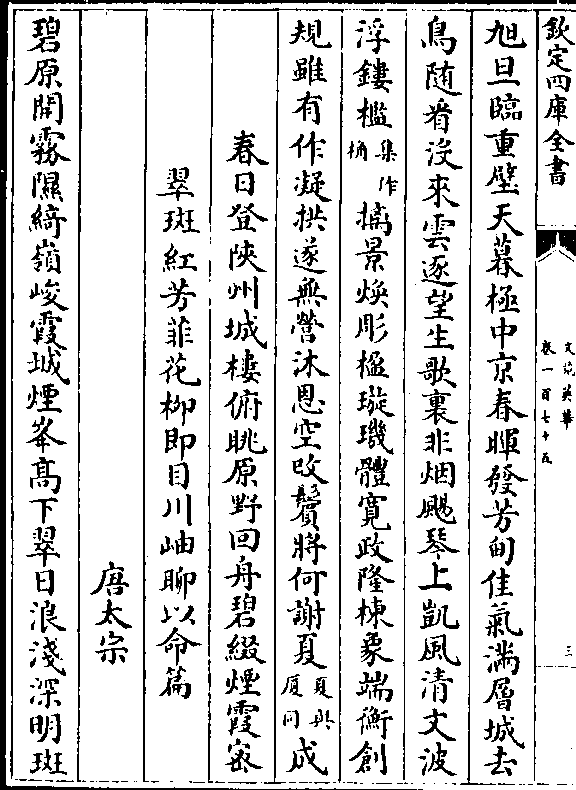 欽定四庫全書
文苑英華
卷一百七十五
三
旭旦臨重壁天暮極中京春暉發芳甸佳氣滿層城去
鳥随看没來雲逐望生歌裏非烟飃琴上凱風清文波
浮鏤檻集作桷摛景煥彫楹璇璣體寛政隆棟象端衡創
規雖有作凝拱遂無營沐恩空改鬢將何謝夏夏與厦同成
春日登陜州城樓俯眺原野回舟碧綴煙霞宻
翠斑紅芳菲花柳即目川岫聊以命篇
唐太宗
碧原開霧隰綺嶺峻霞城煙峯髙下翠日浪淺深明斑